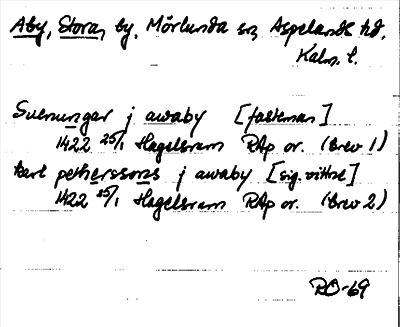 Åby, Stora, by, Mörlunda sn, Aspelands hd,
Kalm. l.
Svenungar j awaby [fastman]
1422 25/1 Hagelsrum RAp or. (Brev 1)
karl pethersons j awaby [sig.vittne]
1422 25/1 Hagelsrum RAp or. (Brev 2)
RO-69